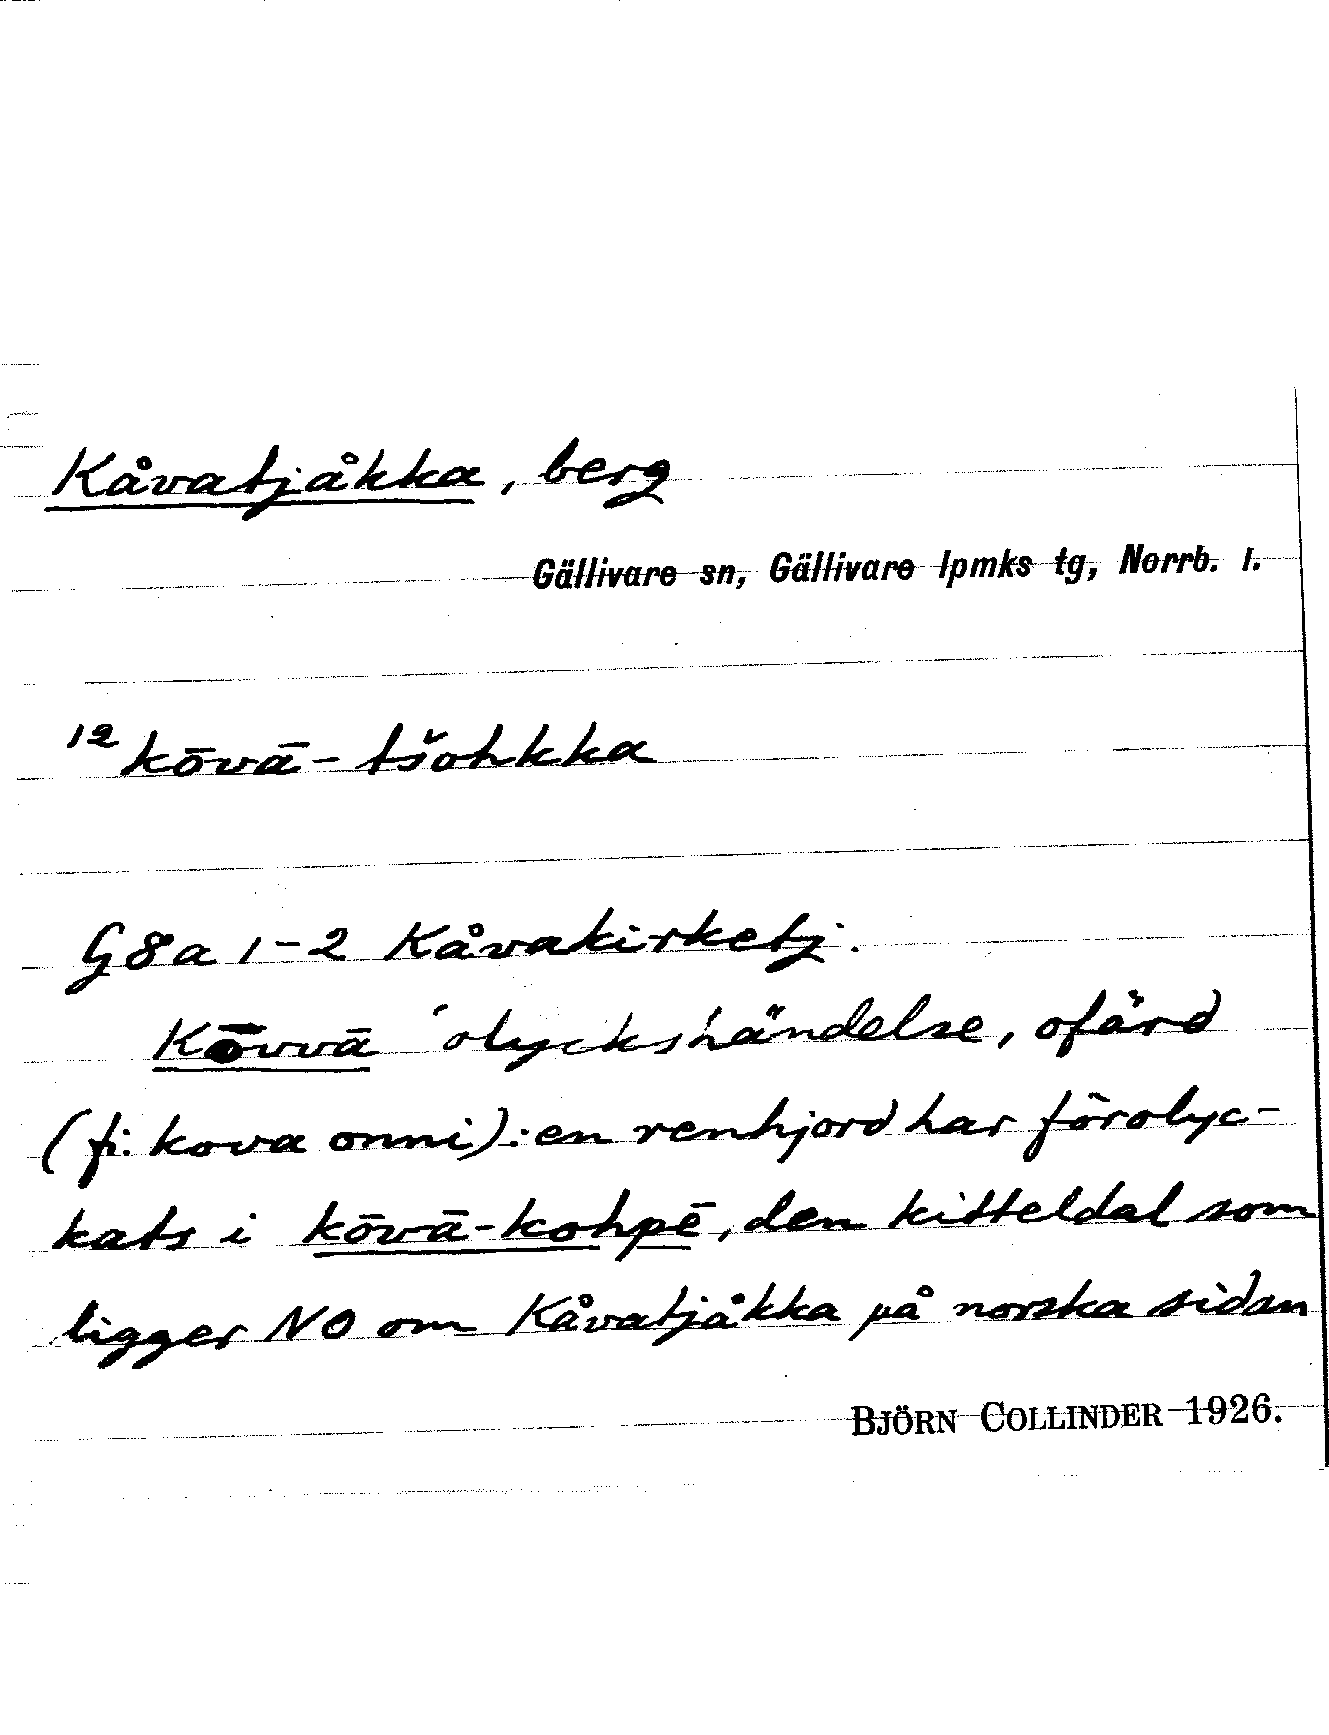 Kåvatjåkka, berg
Gällivare sn, Gällivare lpmks tg, Norrb. l.
12 kōvā-tšohkka
G 8 a 1-2 Kåvakirketj.
Kōvvā ´olyckshändelse, ofärd
(fi. kova onni): en renhjord har förolyc-
kats i kōvā-kohpē, den kitteldal som
ligger NO om Kåvatjåkka på norska sidan
BJÖRN COLLINDER 1926.